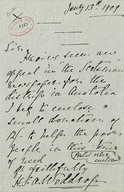 Jany 13th 1909
Sir
Having seen an
appeal in the Scotsman
newspaper for the
distress in Australia
I beg to enclose a
small donation of
to help the poor
people in this time
of need
Yrs faithfully